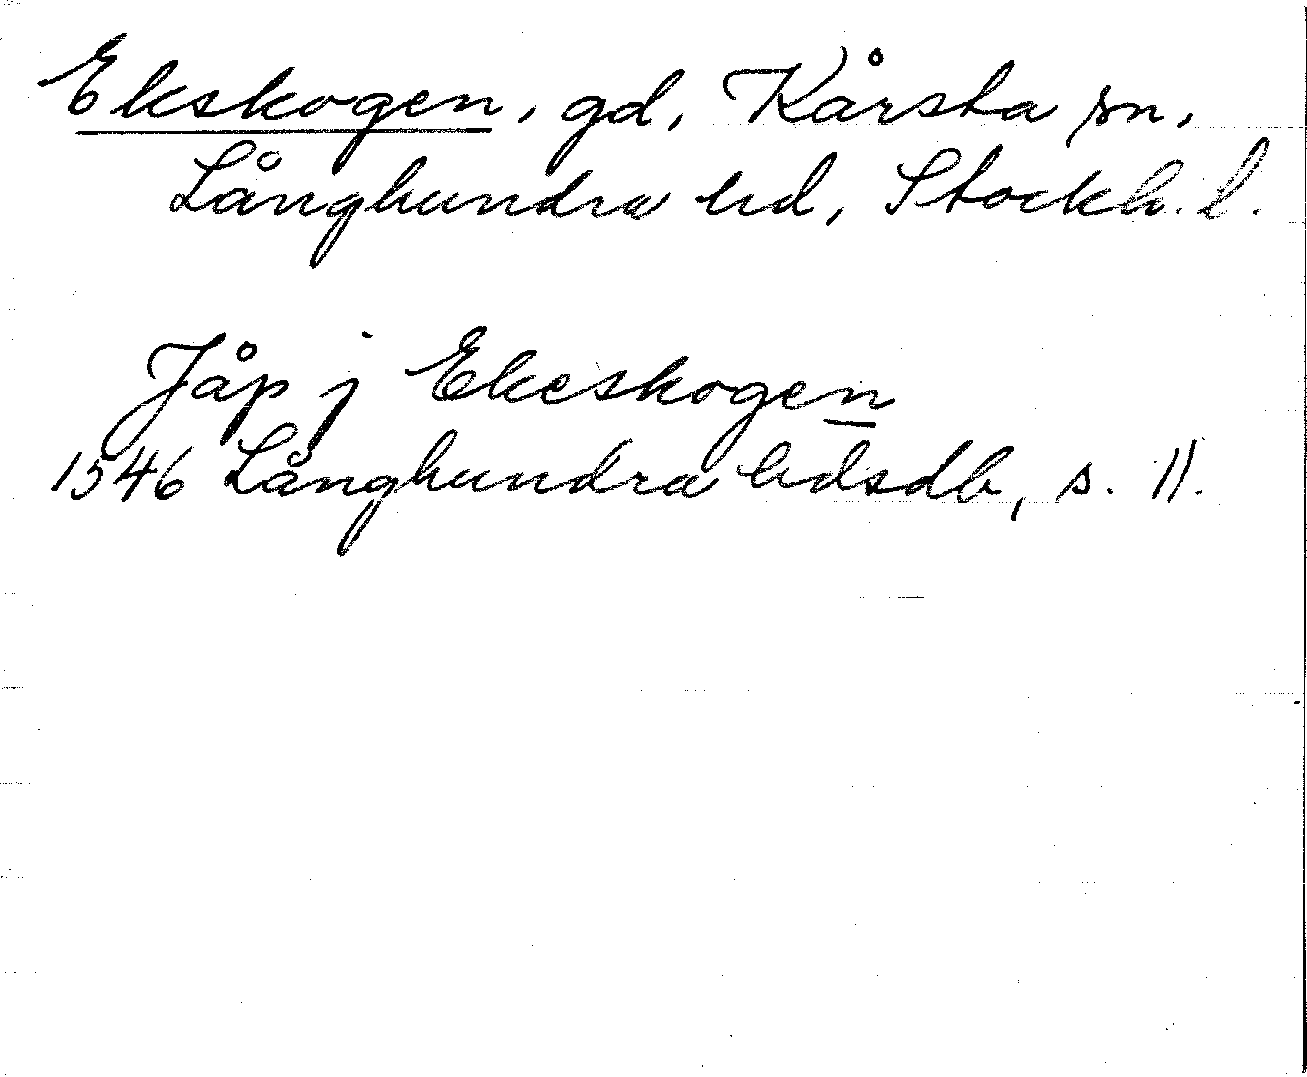 Ekskogen, gd, Kårsta sn,
Långhundra hd, Stockh. l.
Jåp j Ekeskogen
1546 Långhundra hdsdb, s. 11.